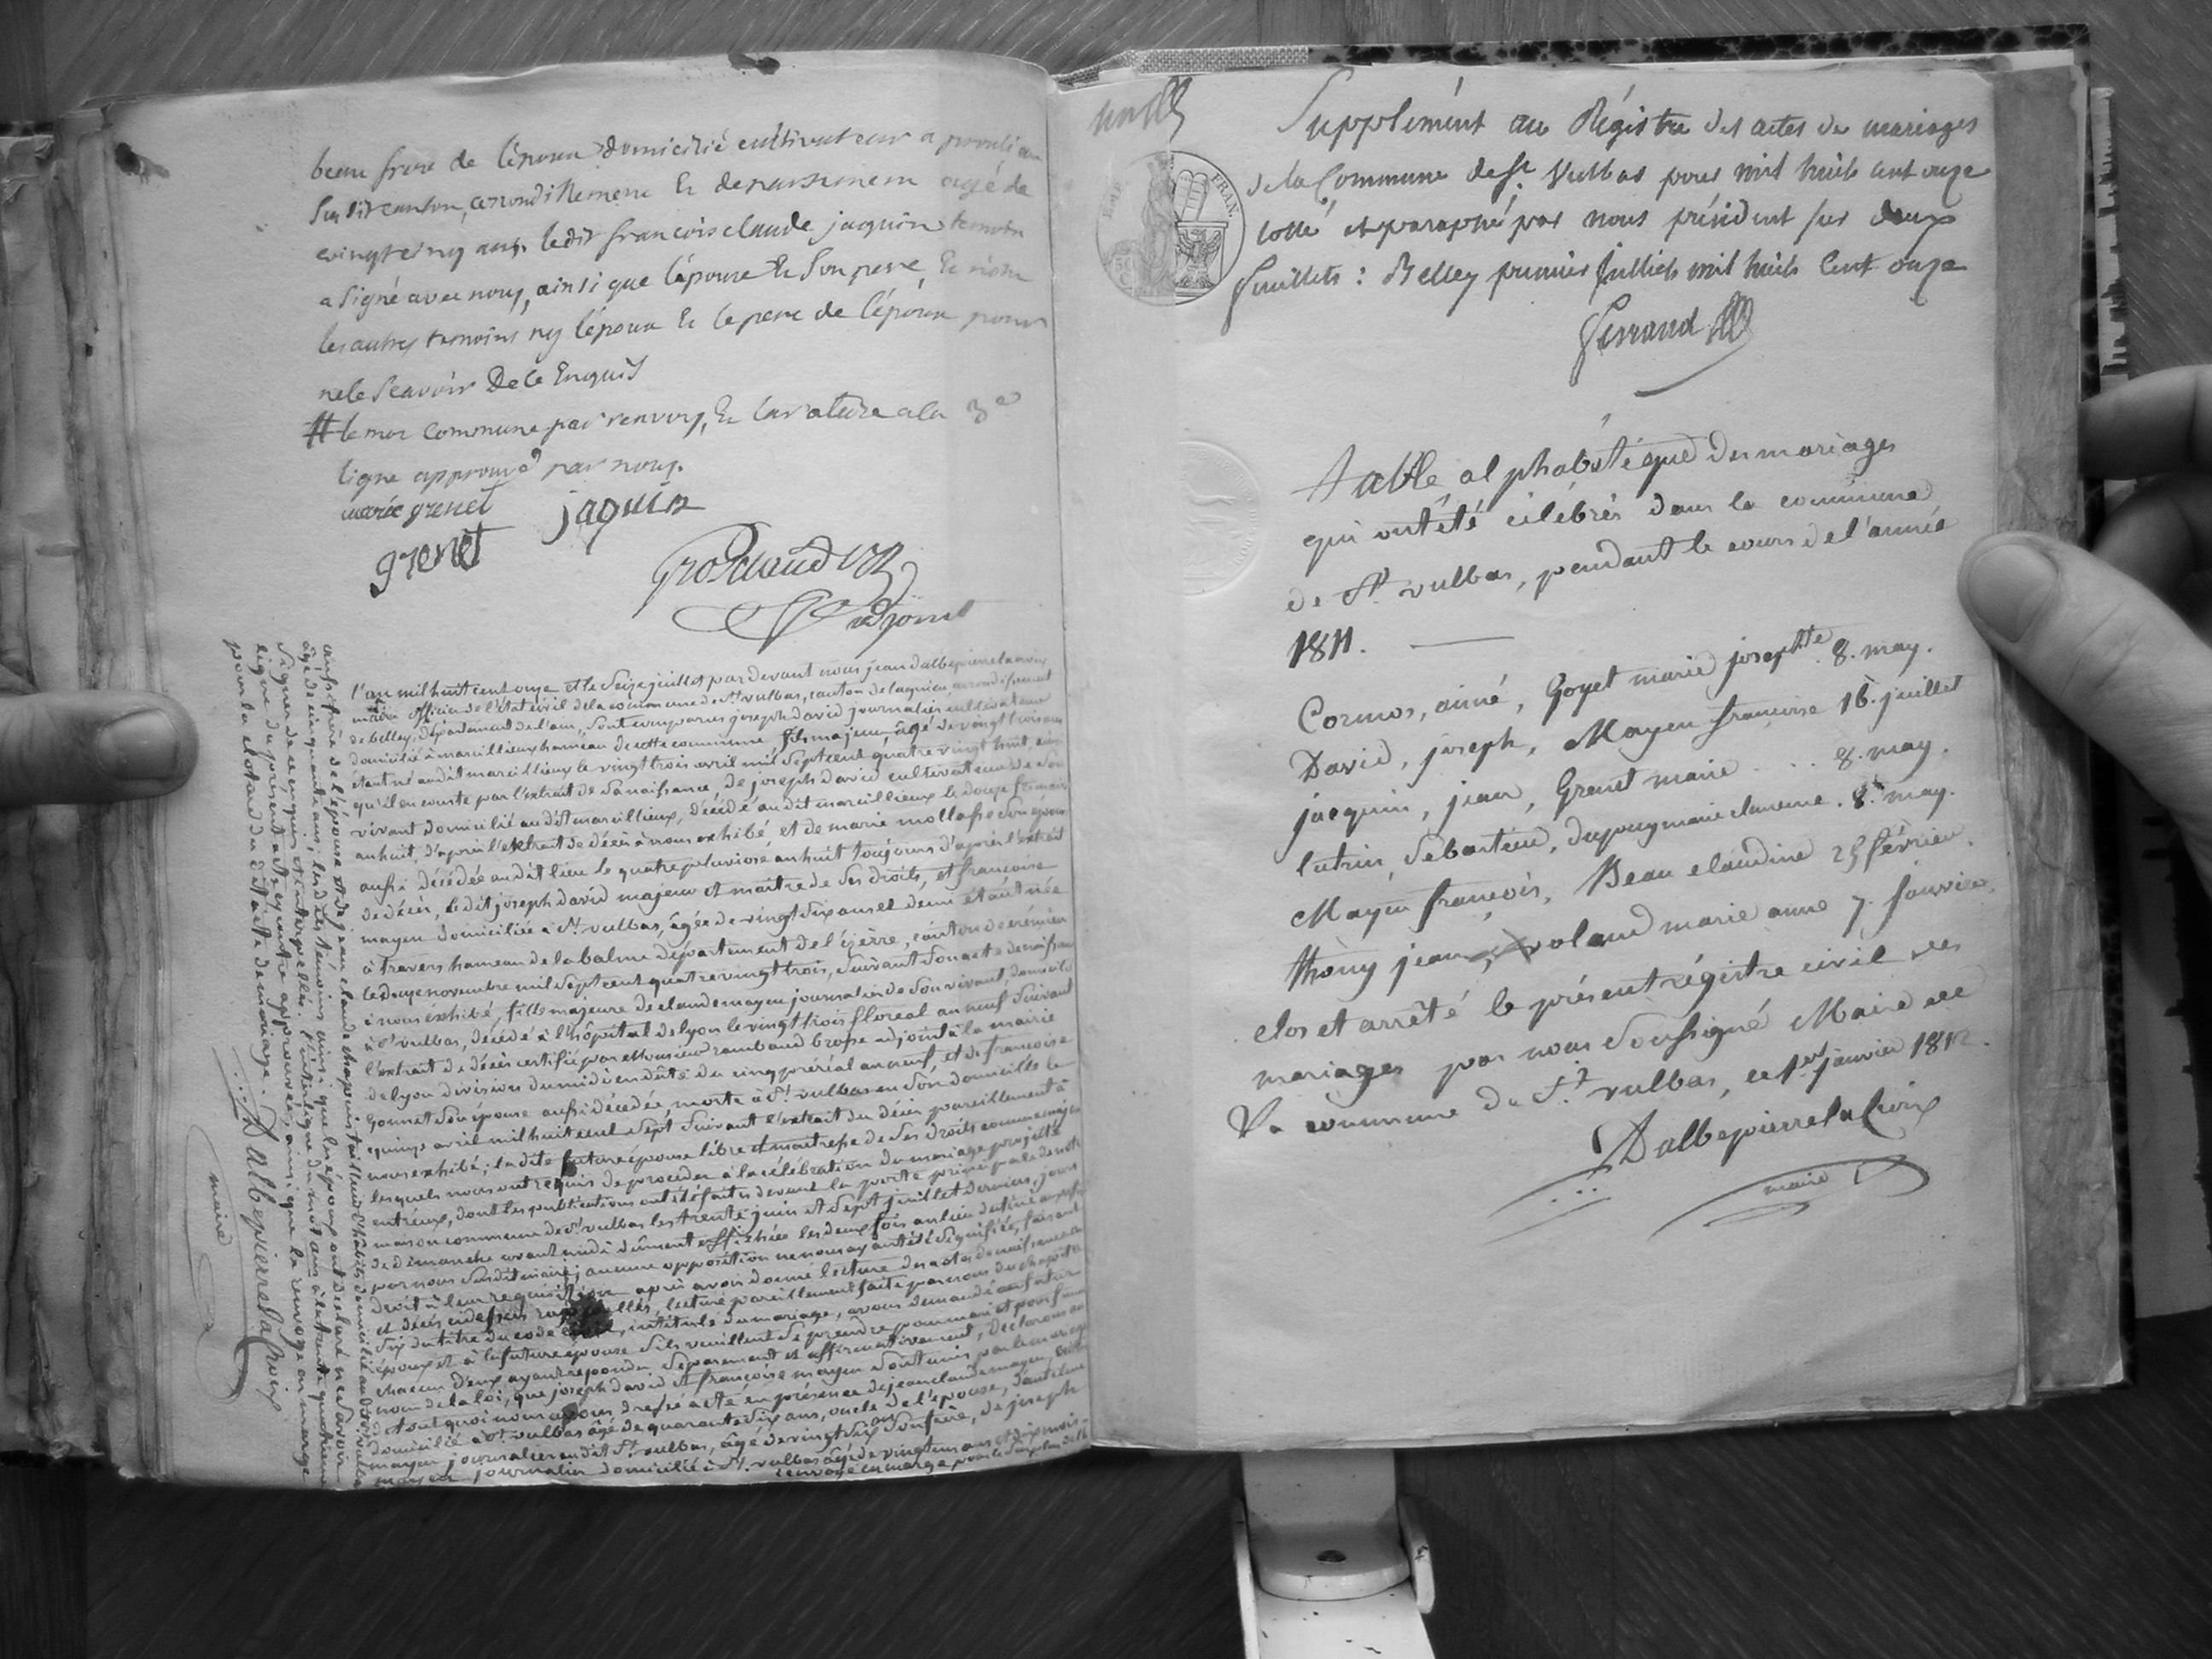 beau frere de lépoux domicilié cultivateur a proulieu
Susdit canton, arrondissement Et departement agé de
vingt cinq ans. ledit francois claude jaquin temoin
a Signé avec nous, ainsi que lépouse Et Son pere Et non
les autres temoins ny lépoux Et le pere de lépoux pour
ne le Scavoir De ce Enquis
# le mot commune par renvoy, Et la rature a la 3e
ligne approuvé par nous.
marie grenet jaquin
grenet
adjoint
l'an mil huit cent onze et le Seize juillet par devant nous jean dalbepierre lacroix
maire officier de l'état civil de la commune de St. vulbas, canton de lagnieu, arrondissement
de belley, département de l'ain, Sont comparus joseph david journalier cultivateur
domicilié à marcillieux hameau de cette commune fils majeur, âgé de vingt trois ans
étant né audit marcillieux le vingt trois avril mil Sept cent quatre vingt huit, ainsi
qu'il en conste par l'extrait de Sa naissance, de joseph david cultivateur de Son
vivant domicilié audit marcillieux, décédé audit marcillieux le douze frimaire
an huit, d'après l'extrait de décès à nous exhibé et de marie mollasse Son épouse
aussi décédée audit lieu le quatre pluviose an huit toujours d'après l'extrait
de décès, le dit joseph david majeur et maitre de Ses droits, et françoise
mayen domiciliée à St. vulbas, âgée de vingt Six ans et demi étant née
à travers hameau de la balme département de l'izère, canton de crémieu
le douze novembre mil Sept cent quatre vingt trois, Suivant Son acte de naissance
à nous exhibé, fille majeure de claude mayen journalier de Son vivant domicilié
à St. vulbas, décédé à l'hôpital de lyon le vingt trois floréal an neuf Suivant
l'extrait de décès certifié par Monsieur rambaud brosse adjoint à la mairie
de lyon division du midi en date du cinq préréal an neuf, et de francoise
Gonnet Son épouse aussi décédée, morte à St. vulbas en Son domicile le
quinze avril mil huit cent Sept Suivant l'extrait du décès pareillement à
nous exhibé; la dite future épouse libre et maitresse de Ses droits comme majeure
lesquels nous ont requis de procéder à la célébration du mariage projetté
entr'eux, dont les publications ont été faites devant la porte principale de notre
maison commune de St. vulbas les trente juin et Sept juillet dernier, jours
de dimanche avant midi dûment affichées les deux fois au lieu destiné
par nous Susdit maire; aucune opposition ne nous ayant été Signifiée, faisant
droit à leur requisition après avoir donné lecture des actes de naissance
et décès cidessus rappellés, lecture pareillement faite par nous du chapitre
Six du titre du code, intitulé du mariage, avons demandé au futur
époux et à la future épouse S'ils veuillent Se prendre pour mari et pour femme
chacun d'eux ayant répondu Séparement et affirmativement, déclarons au
nom de la loi, que joseph david et françoise mayen Sont unis par le mariage
de tout quoi nous avons dressé acte en présence de jean claude mayen
domicilié à St. vulbas âgé de quarante Six ans, oncle de l'épouse,
mayen journalier audit St. vulbas, âgé de vingt Six ans Son frère, de joseph
mayen journalier domicilié à St. vulbas âgé de vingt un ans et dix mois
renvoyé en marge pour le
aussi frère de l'épouse et de jean claude chapuis tailleur d'habits domicilié au dit St vulbas
âgé de cinquante ans; lesdits témoins ainsi que les époux ont déclaré ne Savoir
Signer de ce enquis et interpellés. l'interligne du mot ans à la trente quatrième
ligne du présent acte y contre approuvée, ainsi que le renvoye en marge
pour la clotard du dit acte de mariage.
Dalbepierre La Croix
maire
Supplément au Régistre des actes de mariages
de la Commune de St. Vulbas pour mil huit cent onze
cotté et paraphé par nous président sur deux
feuillets: Belley premier Juillet mil huit Cent onze
Ferrand
FRAN.
table alphabétique des mariages
qui ont été célébrés dans la commune
de St. vulbas, pendant le cours de l'année
1811.
Cormos, aimé, Goyet marie josephte 8. may.
David, joseph, Mayen françoise 16. juillet
jacquin, jean, Grenet marie ... 8. may.
lutrin, Sébastien, dupuy marie clemence. 8. may.
Mayen françois, Beau claudine 25 février.
thony jean, volaud marie anne 7. janvier.
clos et arrêté le présent régistre civil des
mariages par nous Soussigné Maire de
la commune de St. vulbas, ce 1er janvier 1812.
Dalbepierre la Croix
maire